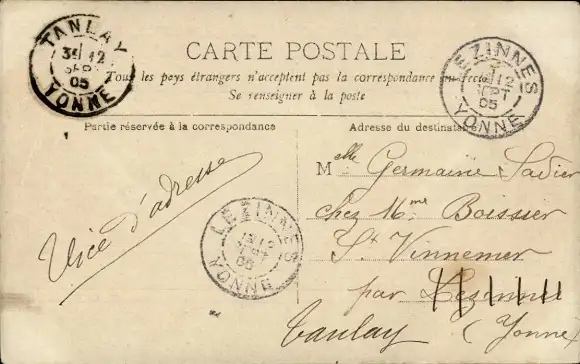 TANLAY
12
05
YONNE
CARTE POSTALE
Tous les pays étrangers n'acceptent pas la correspondance au recto
Se renseigner à la poste
LEZINNES
12
SEPT
05
YONNE
Partie réservée à la correspondance
Vice d'adresse
LEZINNES
12
SEPT
05
YONNE
Adresse du destinataire
Melle Germaine
chez Mme Boissier
St Vinnemer
par Lezinnes
Tanlay (Yonne)